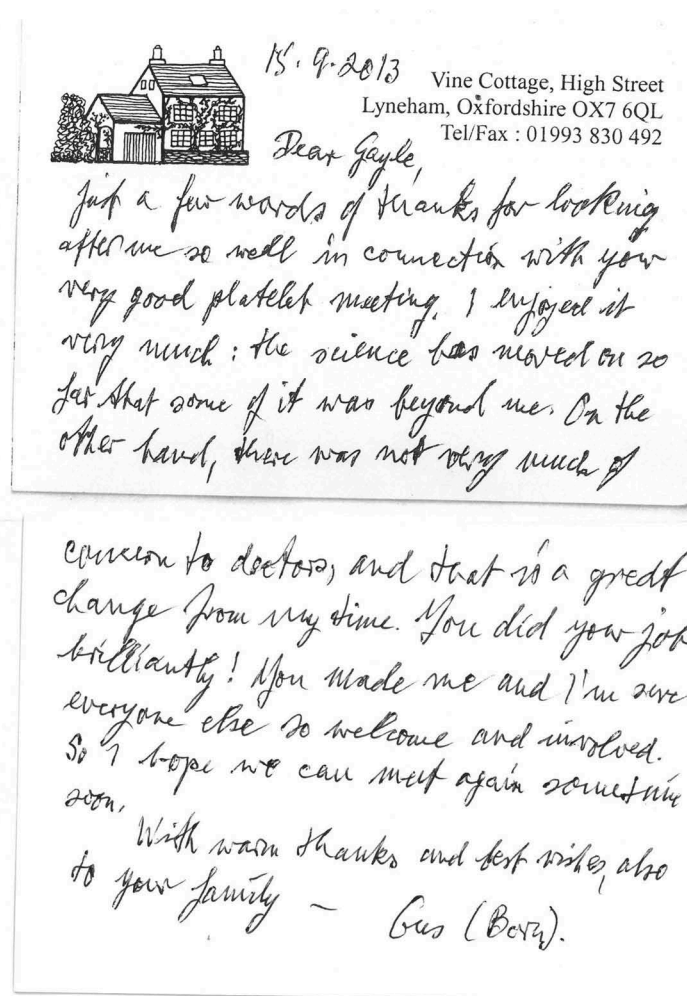 15.9.2013
Vine Cottage, High Street
Lyneham, Oxfordshire OX7 6QL
Tel/Fax : 01993 830 492
Dear Gayle,
Just a few words of thanks for looking
after me so well in connection with your
very good platelet meeting. I enjoyed it
very much: the science has moved on so
far that some of it was beyond me. On the
other hand, there was not very much of
concern to doctors, and that is a great
change from my time. You did your job
brilliantly! You made me and I'm sure
everyone else so welcome and involved.
So I hope we can meet again sometime
soon.
With warm thanks and best wishes, also
to your family –
Gus (Born).